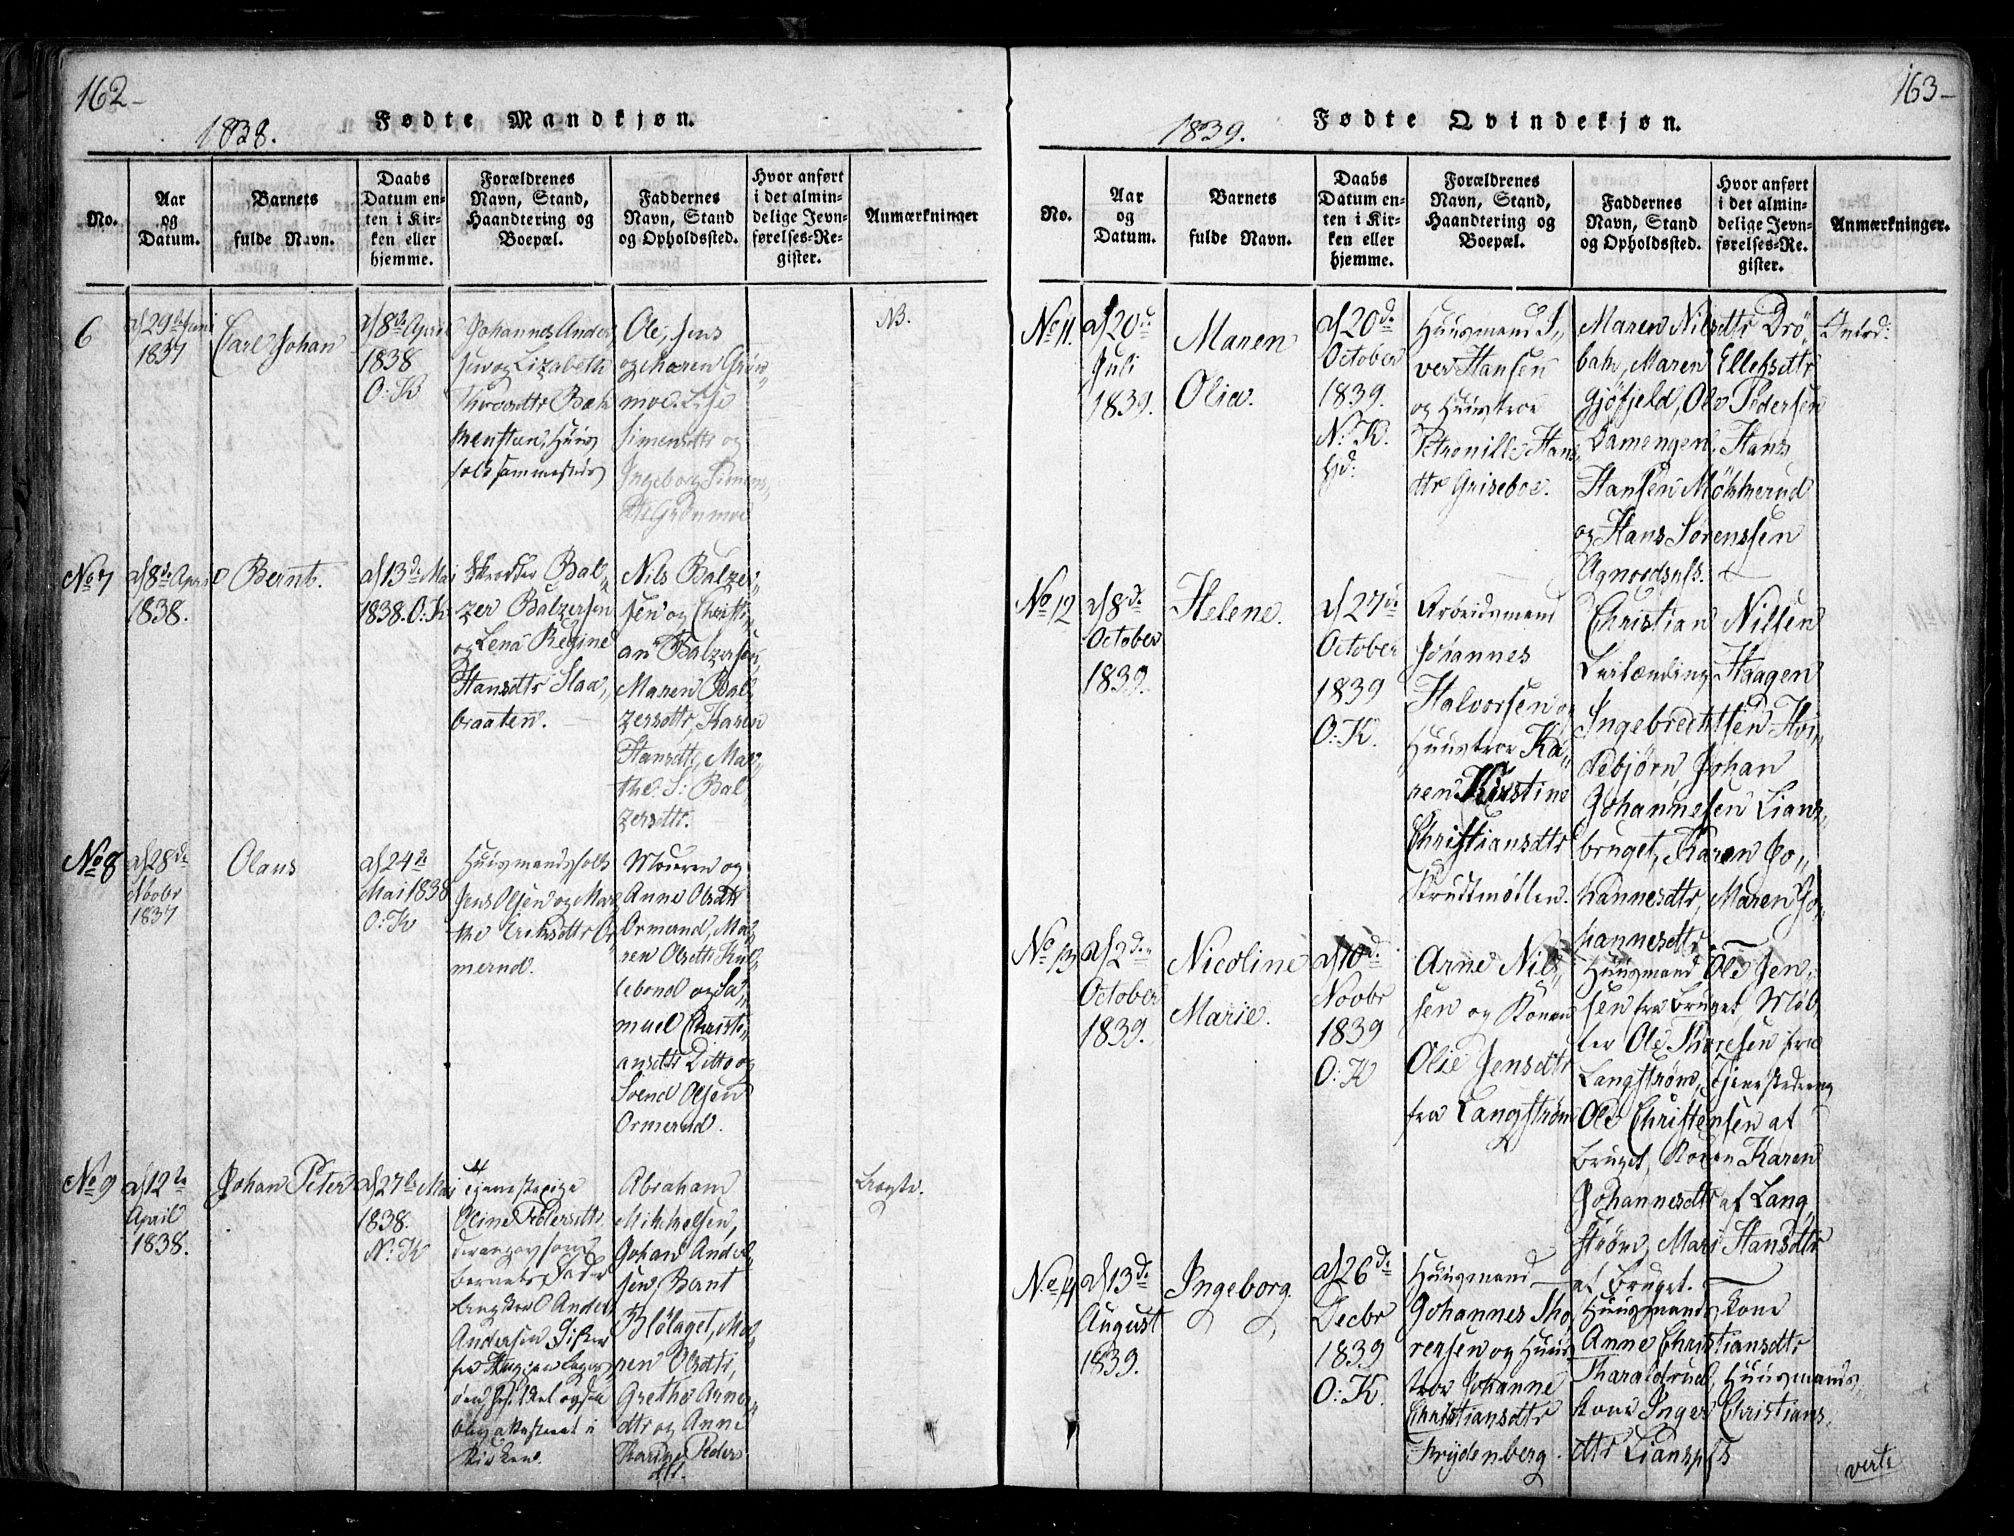 162-
Fødte Mandkjøn.
1838.
No.
Aar
og
Datum.
Barnets
fulde Navn.
Daabs
Datum en-
ten i Kir-
ken eller
hjemme.
Forældrenes
Navn, Stand,
Haandtering og
Boepæl.
Faddernes
Navn, Stand
og Opholdssted.
Hvor anført
i det almin-
delige Jevn-
førelses-Re-
gister.
Anmærkninger
6
d. 29de Juni
1837
Carl Johan
d. 8de April
1838
O: K
Johannes Ander
sen og Lizabeth
Thoresdtr Bak
kenstuen, Huus
folk sammesteds
Ole, Jens
og Maren Grøn
moe. Lise
Simensdtr og
Ingeborg Simens
dtr Grønmoe
NB.
No 7
d. 8de April
1838.
Bernt.
d. 13de Mai
1838. O: K
Skredder Bal
zer Balzersen
og Lena Regine
Hansdtr Slaa
braaten.
Nils Balzer
sen og Christi
an Balzersen
Maren Bal
zersdtr, Karen
Hansdtr, Mar
the S: Bal
zersdtr.
No 8
d. 28de
Novbr
1837
Olaus
d. 24de
Mai 1838
O: K
Huusmandsfolk
Jens Olsen og Mar
the Eriksdtr Or
merud.
Moderen og
Anne Olsdtr
Ormerud, Ma
ren Olsdtr Kul
lebund og Sa
muel Christi
ansdtr Ditto og
Svend Olsen
Ormerud.
No 9
d. 12te
April
1838.
Johan Peter
d. 27de Mai
1838.
N: K
Tjenestepige
Oline Pedersdtr.
der angav som
Barnets Fader
Ander
Andersen
Kirken.
Abraham
Mikkelsen,
Johan Ander
sen, Bernt
Bloklaget, Ma
ren Olsdtr,
Grethe Arnes
dtr og Anne
Peders
dtr.
163-
Fødte Qvindekjøn.
1839.
No.
Aar
og
Datum.
Barnets
fulde Navn.
Daabs
Datum en-
ten i Kir-
ken eller
hjemme.
Forældrenes
Navn, Stand,
Haandtering og
Boepæl.
Faddernes
Navn, Stand
og Opholdssted.
Hvor anført
i det almin-
delige Jevn-
førelses-Re-
gister.
Anmærkninger.
No 11.
d. 20de
Juli
1839.
Maren
Olia.
d. 20de
October
1839.
N: K.
hjd:
Huusmand I
ver Hansen
og Huustroe
Petronille Hans
dtr Griseboe.
Maren Nilsdtr Drø
bak, Maren Ellefsdtr
Gjøfjeld, Ole Pedersen
Damengen, Hans
Hansen Mokkerud
og Hans Sørenssen
Agnordspls.
Introd:
No 12
d. 8de
October
1839.
Helene.
d. 27de
October
1839
O: K.
Arbeidsmand
Johannes
Halvorsen og
Huustroe Ka
ren Kirstine
Christiansdtr
Krudtmøllen.
Christian Nilsen
Leilænding Haagen
Ingebrechtsen Hvi
debjørn, Johan
Johannesen Lians
bruget, Karen Jo
hannesdtr, Maren Jo
hannesdtr
No 13
d. 2de
October
1839.
Nicoline
Marie.
d. 10d.
Novbr
1839
O: K
Arne Nil
sen og Konen
Olie Jensdtr
fra Langstrøm
Huusmand Ole Jen
sen fra Bruget, Møl
ler Ole Thoresen fra
Langstrøm, Tjenestedreng
Ole Christensen af
Bruget, Konen Karen
Johannesdtr af Lang
strøm, Mari Hansdtr
af Bruget.
No 14
d. 13de
August
1839.
Ingeborg
d. 26de
Decbr
1839
O: K.
Huusmand
Johannes Tho
resen og Huus
troe Johanne
Christiansdtr
Frydenberg
Huusmands Kone
Anne Christiansdtr
Tharaldsrud, Huusmands
kone Inger Christians
dtr Lianspls
verte